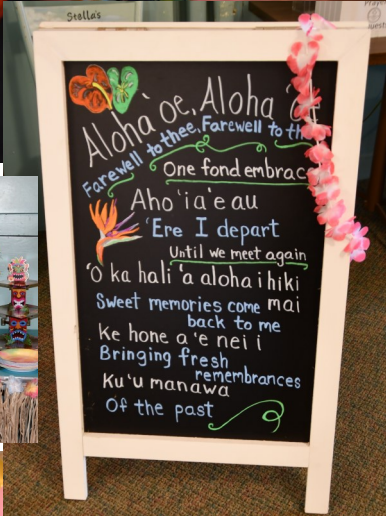 Stella's
Aloha ʻoe, Aloha
Farewell to thee, Farewell to
One fond embrac
Aho ʻia ʻe au
ʻEre I depart
Until we meet again
ʻO ka hali ʻa aloha i hiki
mai
Sweet memories come
back to me
Ke hone a ʻe nei i
Bringing fresh
remembrances
Kuʻu manawa
Of the past